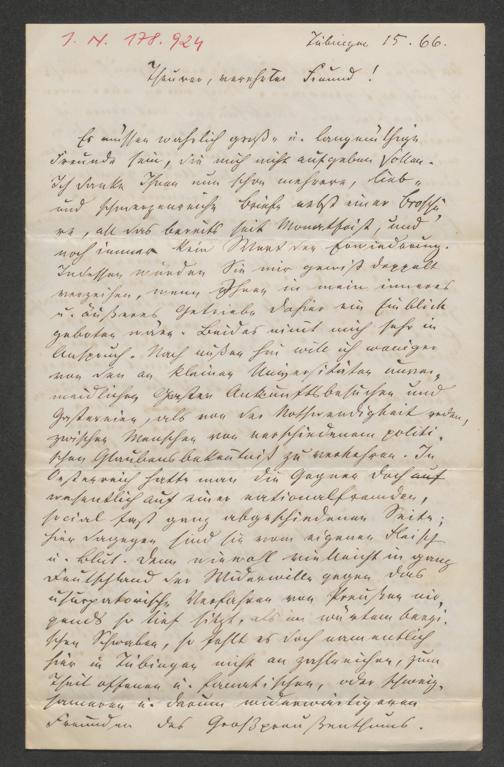 I. N. 178.924
Tübingen 15. 66.
Theurer, verehrter Freund!
Es müssen wahrlich große u. langmüthige
Freunde sein, die mich nicht aufgeben sollen.
Ich danke Ihnen nun schon mehrere, lieb-
und schmerzenreiche Briefe nebst einer Broschü-
re, all das bereits seit Monatsfrist, und
noch immer kein Wort der Erwiederung.
Indessen würden Sie mir gewiß doppelt
verzeihen, wenn Ihnen in mein inneres
u. äußeres Getriebe dahier ein Einblick
geboten wäre. Beides nimt mich sehr in
Anspruch. Nach außen hin will ich weniger
von den an kleinen Universitäten unver-
meidlichen Ankunftsbesuchen und
Gastereien, als von der Nothwendigkeit reden,
zwischen Menschen von verschiedenem politi-
schen Glaubensbekentniß zu verkehren. In
Oesterreich hatte man die Gegner doch auf
wesentlich auf einer nationalfremden,
social fast ganz abgeschiedenen Seite;
hier dagegen sind sie vom eigenen Fleisch
u. Blut. Denn wiewoll vielleicht in ganz
Deutschland der Widerwillen gegen das
usurpatorische Verfahren von Preußen nir-
gends so tief sitzt, als im würtembergi-
schen Schwaben, so fehlt es doch namentlich
hier in Tübingen nicht an zahlreichen, zum
Theil offenen u. fanatischen, oder schweig-
sameren u. darum widerwärtigeren
Freunden des Großpreußenthums.